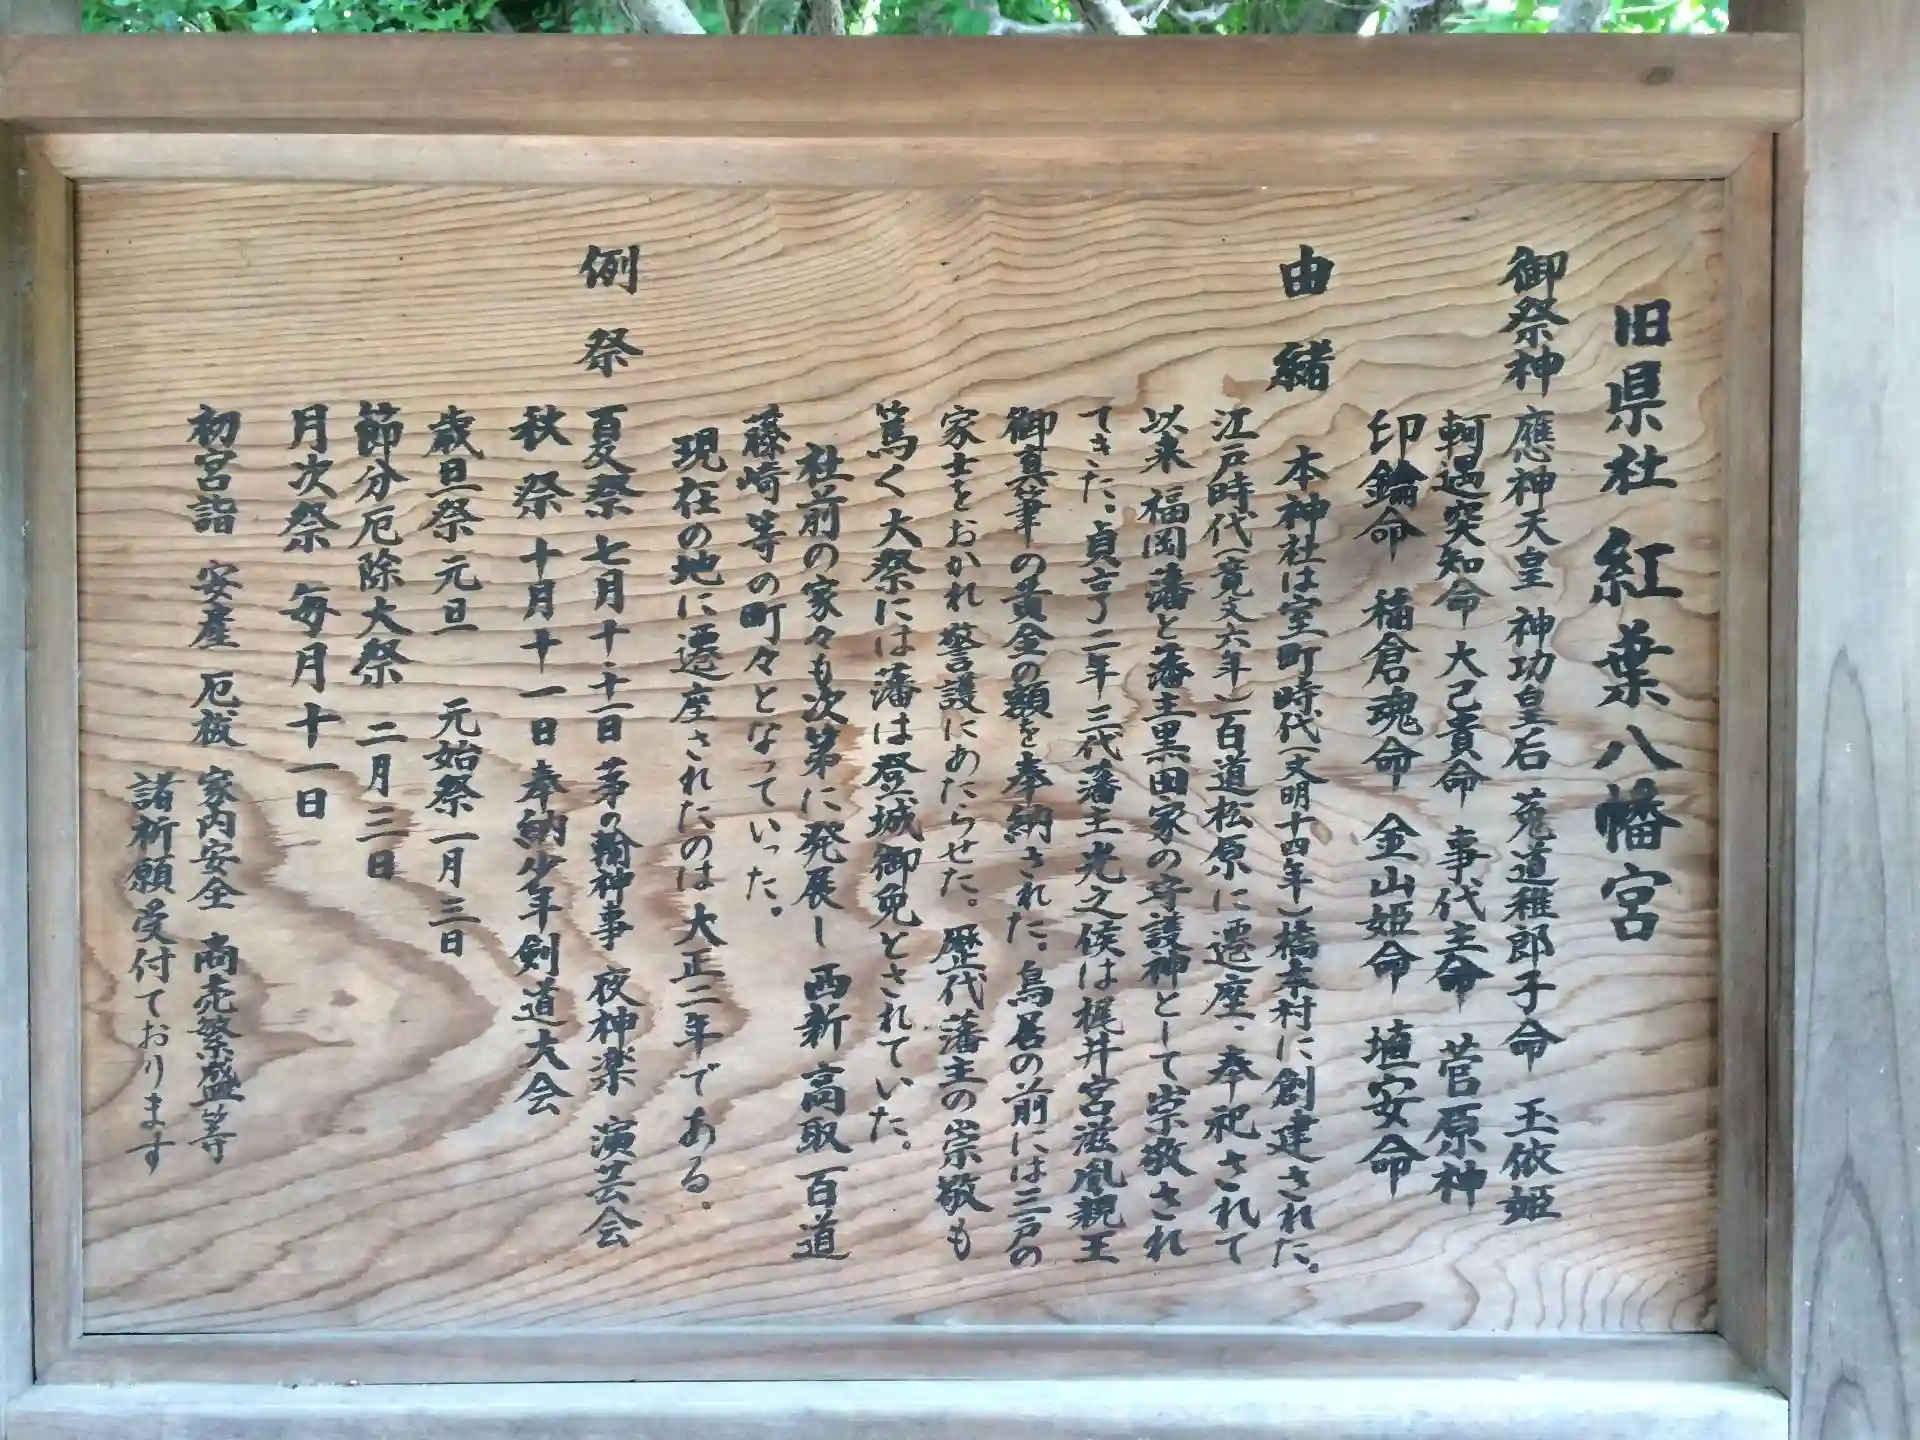 旧県社 紅葉八幡宮
御祭神 應神天皇 神功皇后 菟道稚郎子命 玉依姫
軻遇突知命 大己貴命 事代主命 菅原神
印鑰命 稲倉魂命 金山姫命 埴安命
由緒 本神社は室町時代(文明十四年)橋本村に創建された。
江戸時代(寛文六年)百道松原に遷座、奉祀されて
以来 福岡藩と藩主黒田家の守護神として崇敬され
てきた。貞享二年三代藩主光之候は梶井宮滋胤親王
御真筆の黄金の額を奉納された。鳥居の前には三戸の
家士をおかれ警護にあたらせた。歴代藩主の崇敬も
篤く大祭には藩は登城御免とされていた。
社前の家々も次第に発展し 西新 高取 百道
藤崎等の町々となっていった。
現在の地に遷座されたのは大正二年である。
例祭 夏祭 七月十・十一日 茅の輪神事 夜神楽 演芸会
秋祭 十月十一日 奉納少年剣道大会
歳旦祭 元旦 元始祭 一月三日
節分厄除大祭 二月三日
月次祭 毎月十一日
初宮詣 安産 厄祓 家内安全 商売繁盛等
諸祈願受付ております